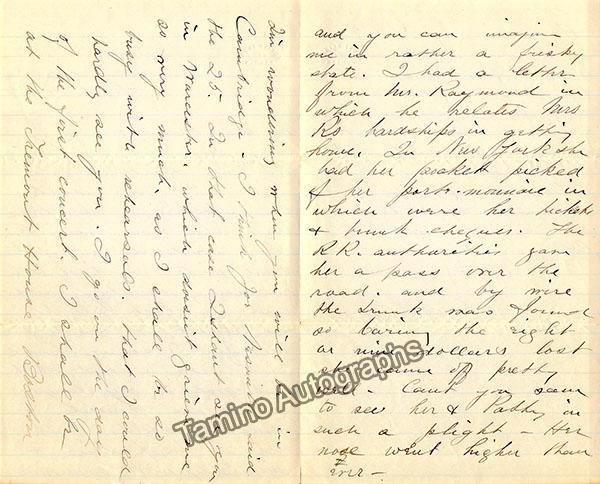 and you can imagine
me in rather a frisky
state. I had a letter
from Mr. Raymond in
which he relates Mrs
Rs hardships in getting
home. In New York she
had her pocket picked
of her porte-monnaie in
which were her tickets
& trunk cheques. The
R.R. authorities gave
her a pass over the
road. and by wire
the trunk was found
so baring the eight
or nine dollars lost
she came of pretty
well - Can't you seem
to see her & Patty in
such a plight - Her
nose went higher than
ever -
I'm wondering when you will be in
Cambridge - I think for said
the 25. In that case I shant see you
in Worcester. which doesn't grieve me
so very much, as I shall be so
busy with rehearsals. that I could
hardly see you. I go on the day
of the first concert. I shall be
at the Tremont House Boston
Tamino Autographs